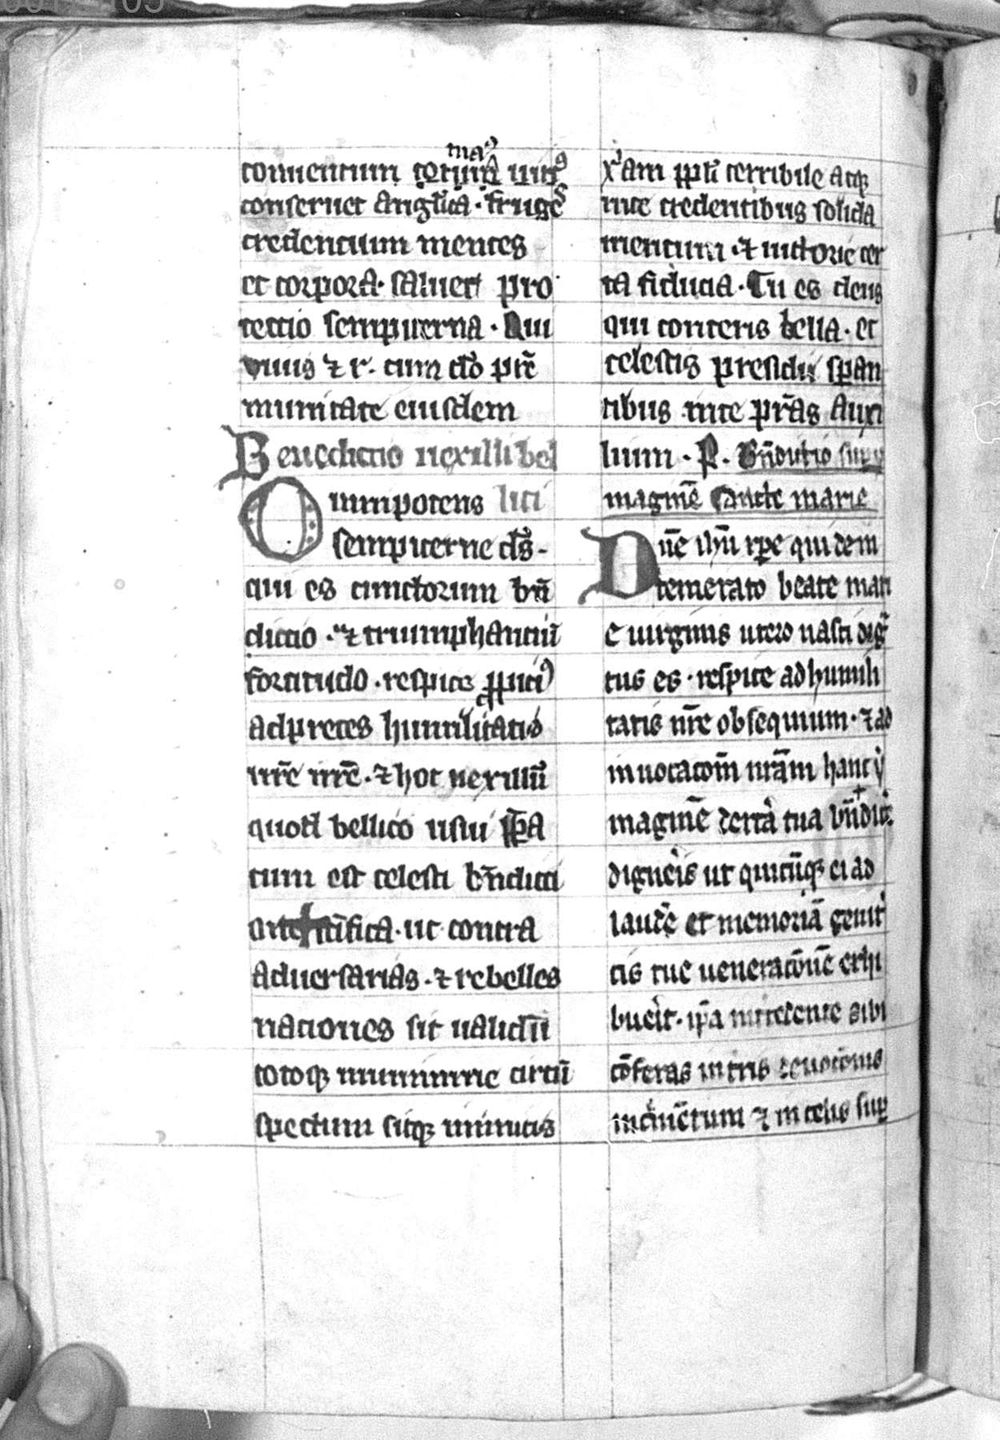 conseruet angl̄ica · fruge᷒
credentium mentes
et corpora · saluet pro
tectio sempiterna · Qui
viuis ⁊ r · cum do᷒ pr̄e
munitate eiusdem
Benedictio uexilli bel
lici
Omnipotens
sempiterne ds᷒ ·
qui es cunctorum bn̄
dictio · ⁊ triumphantiū
fortitudo · respice ꝓpici᷒
ad preces humilitatis
nr̄e · ⁊ hoc uexillū
quod bellico usui p̄pa
tum est celesti bn̄dicti
one ✝ sc̄ifica · ut contra
aduersarias · ⁊ rebelles
nationes sit ualidū
totoqꝫ munimine circū
spectum sitqꝫ inimicis
xp̄iani ppl̄i terribile atqꝫ
in te credentibus solida
mentum · ⁊ uictorie cer
ta fiducia · Tu es deus
qui conteris bella · et
celestis presidii sꝑan
tibus in te pr̄as auxi
lium · P̷ . Bn̄dictio sup y
maginē sancte marie
Dn̄e ih̄u xp̄e qui de in
temerato beate mari
e uirginis utero nasci diḡ
tus es · respice ad humili
tatis nr̄e obsequium · ⁊ ad
inuocatōm nr̄am hanc ẏ
maginē dext̄a tua bn̄✝dic̄
digneris ut quicūqꝫ ei ad
laudē et memoriā genit᷒
cis tue ueneratōnē exhi
buerit · ip̄a intercente sibi
cōferas in tris deuotōnis
incremētum ⁊ in celis suꝑ